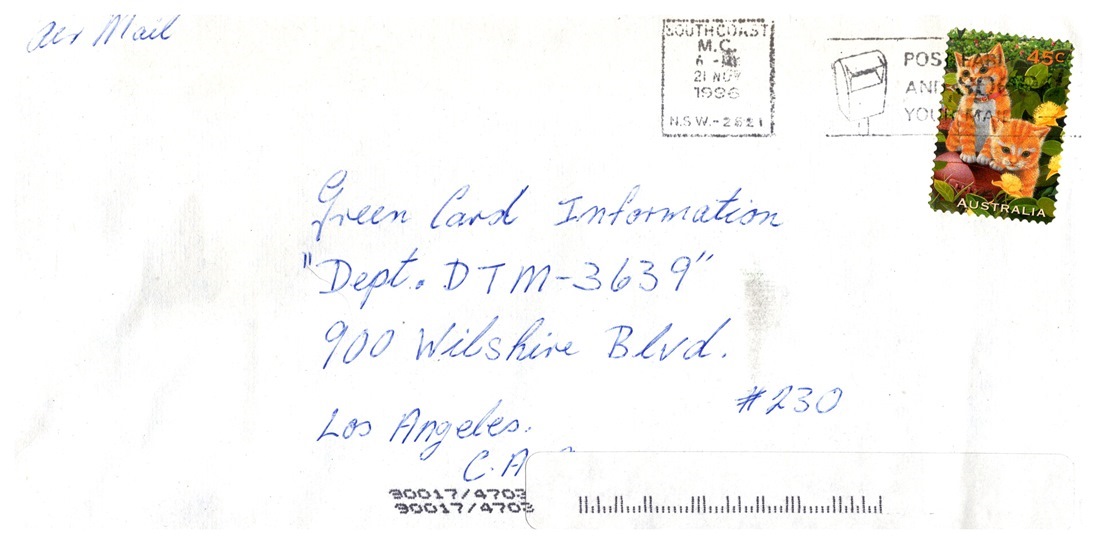 Air Mail
SOUTHCOAST
M.C.
6 -
21 NOV
1996
N.S.W.-2521
POST EARLY
AND
YOUR MAIL
45c
AUSTRALIA
Green Card Information
"Dept. DTM-3639"
900 Wilshire Blvd.
#230
Los Angeles.
C.A
90017/4703
90017/4703